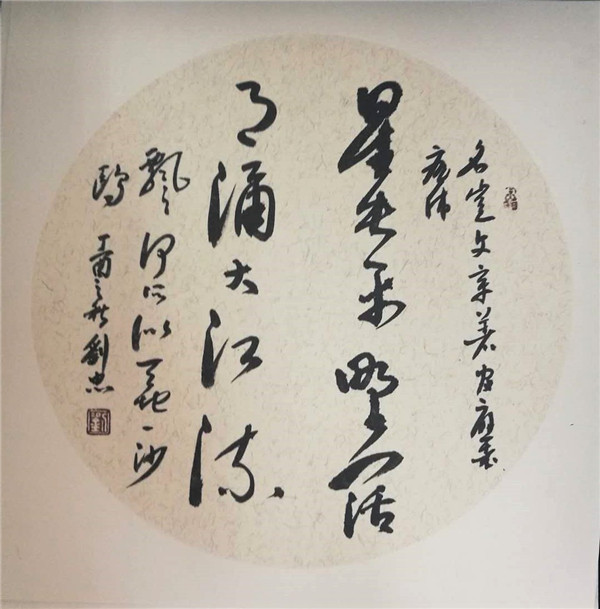 名豈文章著官應老
病休
星垂平野闊
月涌大江流
飄々何所似天地一沙
鷗 丁酉之秋劉忠